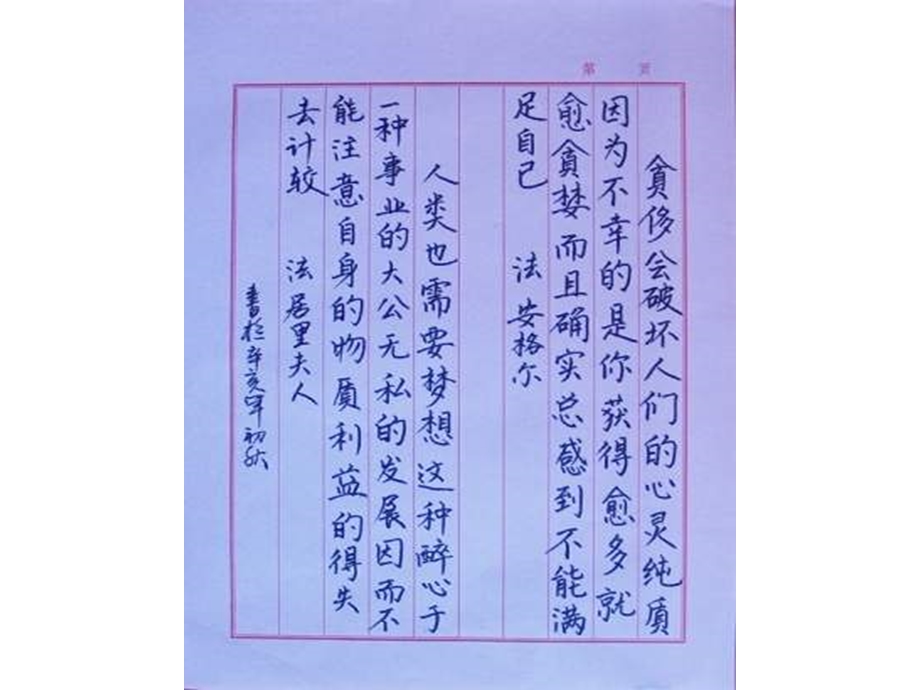 第 页
贪侈会破坏人们的心灵纯质
因为不幸的是你获得愈多就
愈贪婪而且确实总感到不能满
足自己 法 安格尔
人类也需要梦想这种醉心于
一种事业的大公无私的发展因而不
能注意自身的物质利益的得失
去计较 法居里夫人
书于辛亥年初秋